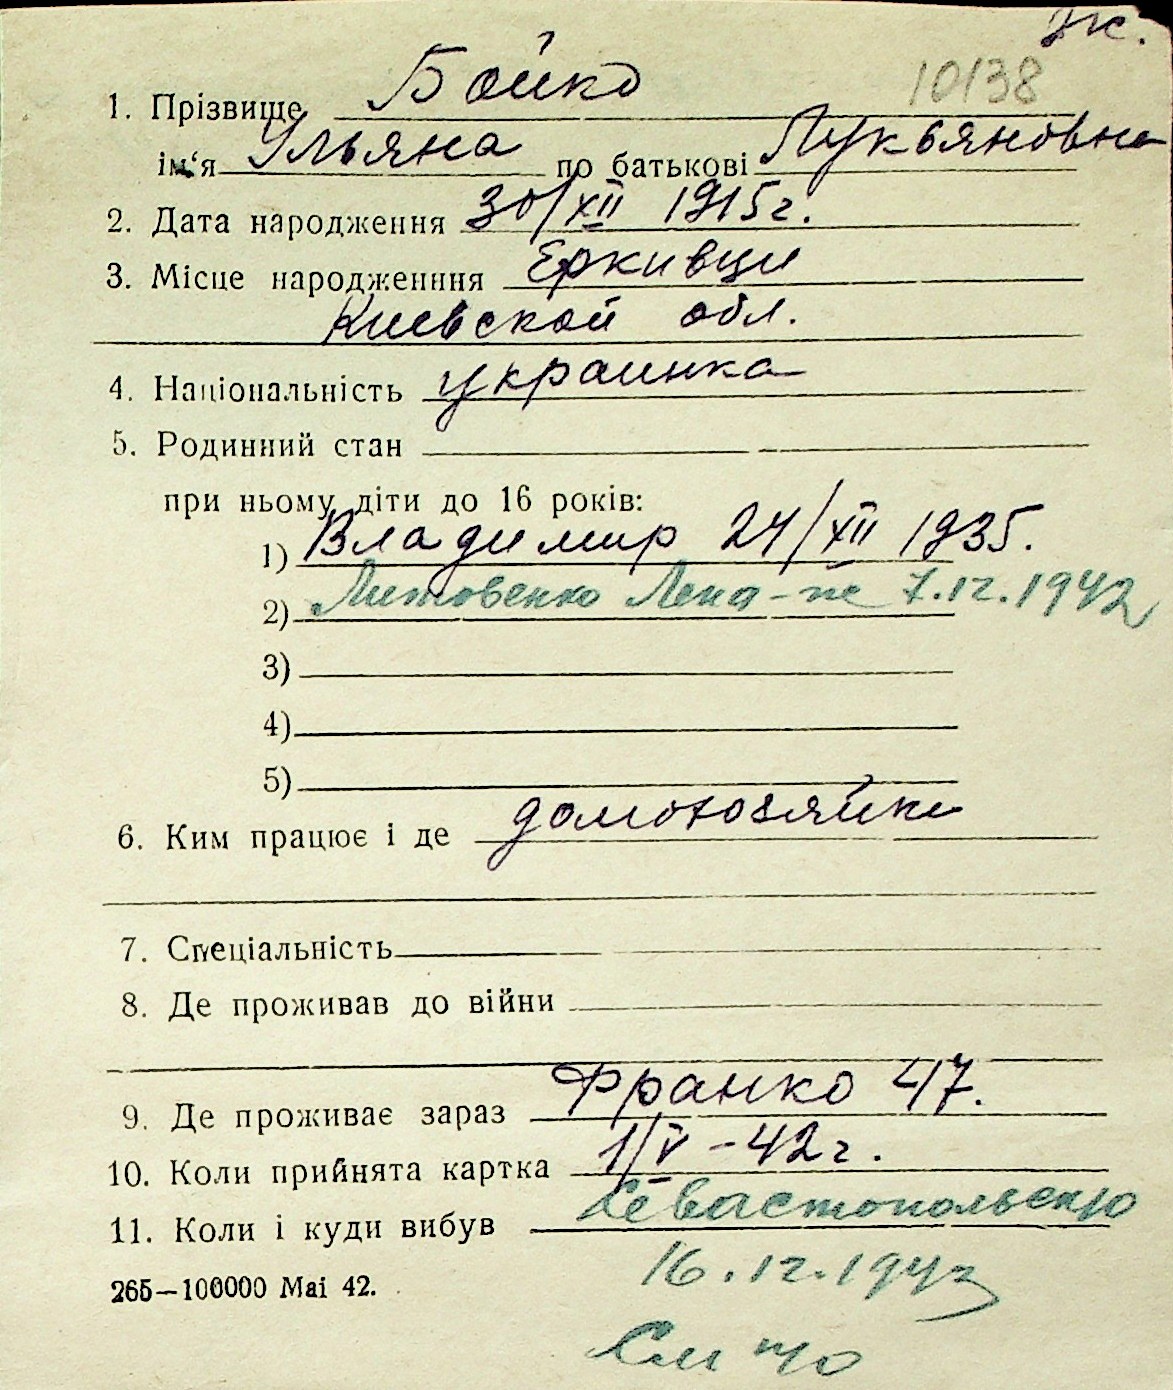 Эк.
10138
1. Прізвище Бойко
ім'я Ульяна по батькові Лукьяновна
2. Дата народження 30/XII 1915г.
3. Місце народженння Еркивци
Киевской обл.
4. Національність украинка
5. Родинний стан
при ньому діти до 16 років:
1) Владимир 24/XII 1935.
2) Литовенко Лена 7.12.1942
3)
4)
5)
6. Ким працює і де домохозяйка
7. Спеціальність
8. Де проживав до війни
9. Де проживає зараз Франко 47.
10. Коли прийнята картка 1/V-42г.
11. Коли і куди вибув Севастопольскую
16.12.1942
265—100000 Mai 42.